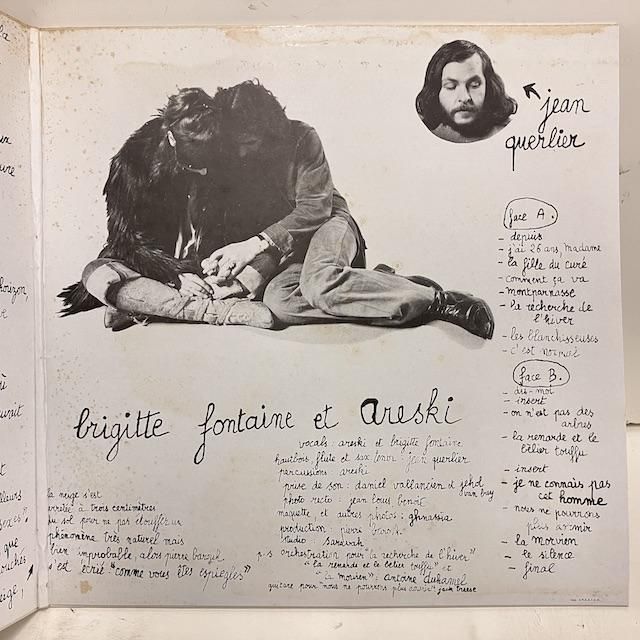 jean
querlier
face A.
- depuis
- j'ai 26 ans, madame
- la fille du curé
- comment ça va
- montparnasse
- la recherche de
l'hiver
- les blanchisseuses
- c'est normal
face B.
- dis-moi
- insert
- on n'est pas des
arbres
- la renarde et le
bélier touffu
- insert
- je ne connais pas
cet homme
- nous ne pourrons
plus
- la morvien
- le silence
- final
brigitte fontaine et areski
vocals : areski et brigitte fontaine
hautbois, flute et sax tenor : jean querlier
percussions : areski
prise de son : daniel vallancien et jéhol
photo recto : jean louis benoit
maquette, et autres photos : ghnassia
production : pierre barouh
studio : saravah
p.s orchestration pour "la recherche de l'hiver"
"la renarde et le belier touffu" et
"la morvien" : antoine duhamel
guitare pour "nous ne pourrons plus
la neige s'est
arretée à trois centimètres
du sol pour ne pas étouffer un
phénomène très naturel mais
bien improbable, alors pierre
s'est écrié "comme vous êtes espiègles"